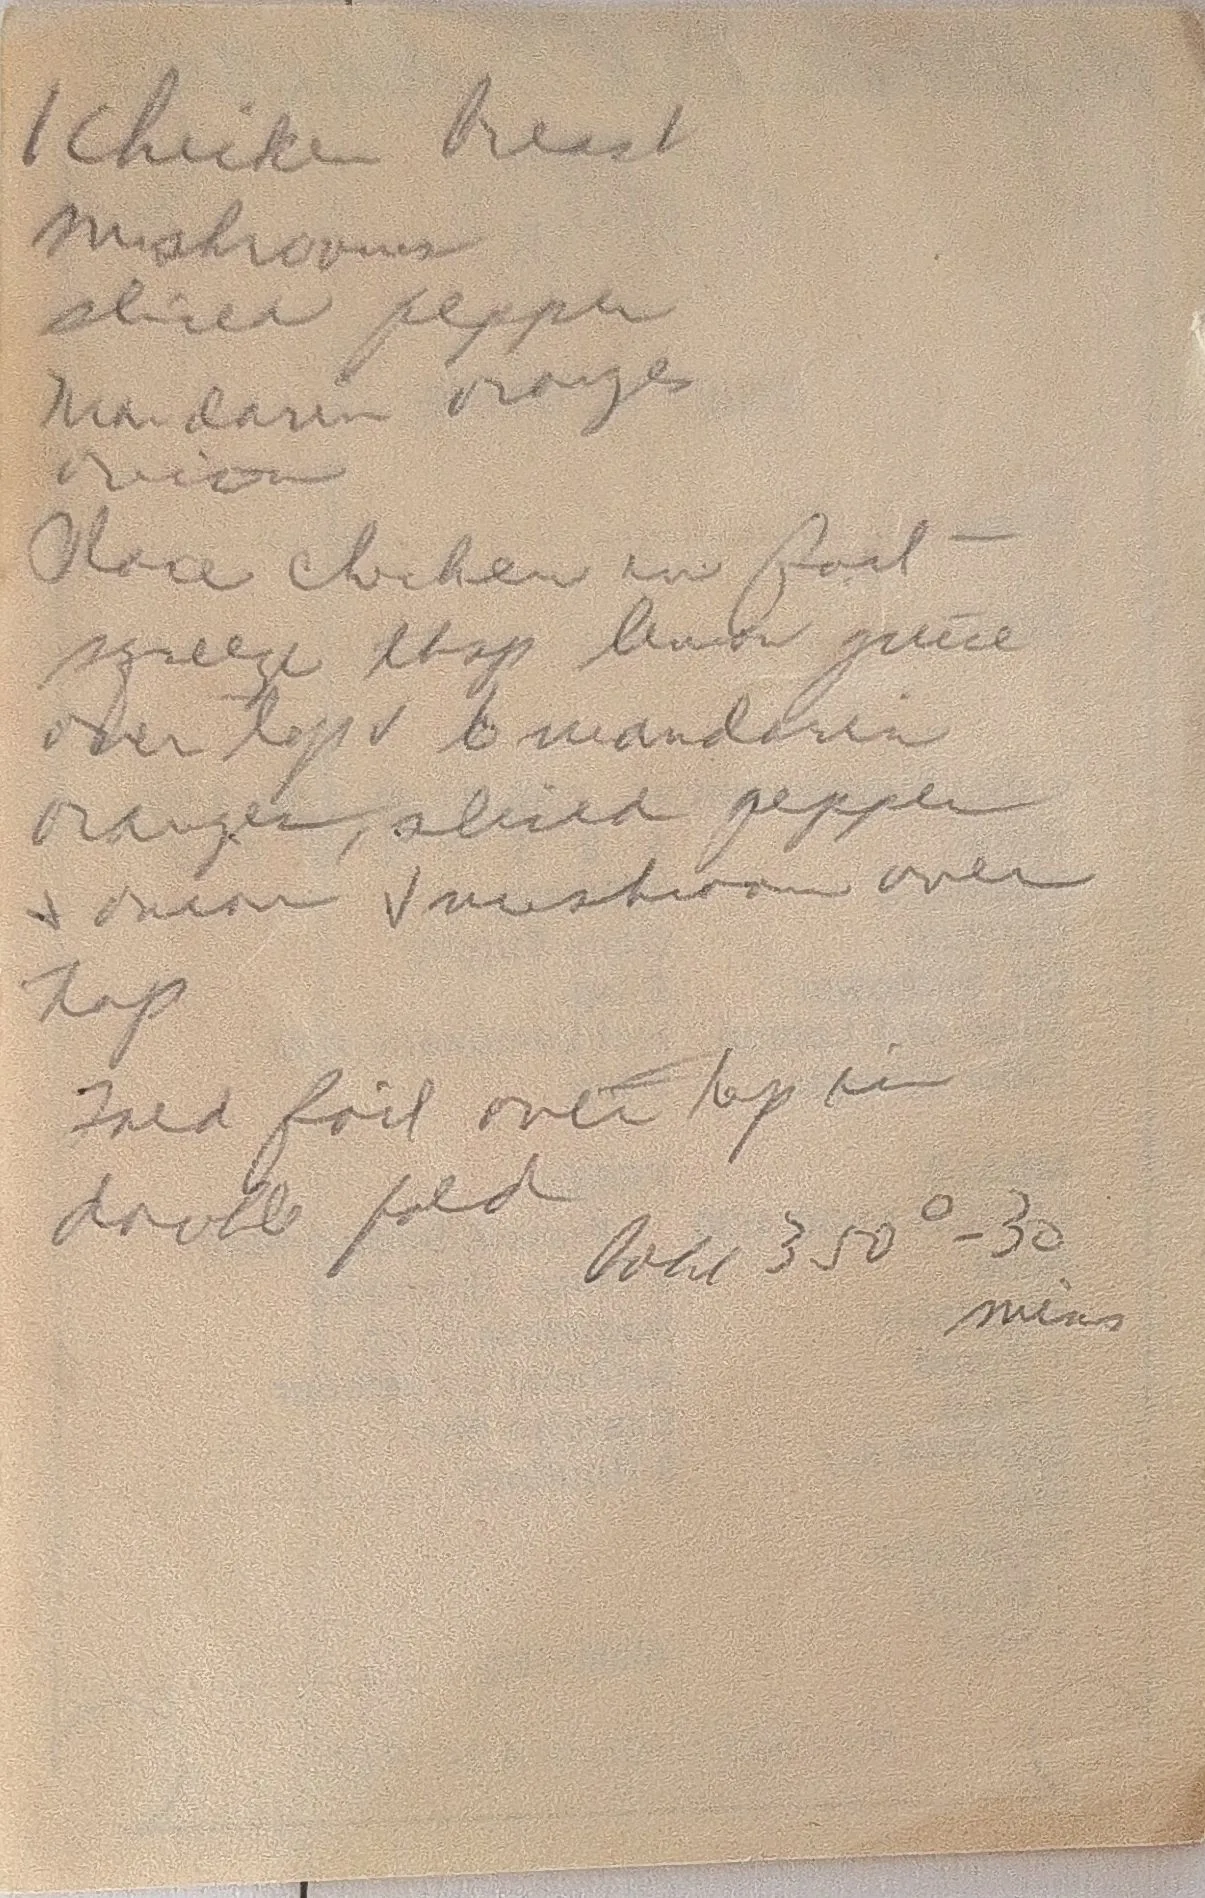 1 Chicken breast
Mushrooms
sliced pepper
Mandarin oranges
onion
Place chicken in foil –
squeeze tbsp lemon juice
over top & 6 mandarin
oranges, sliced pepper
& onion & mushroom over
top
Fold foil over top in
double fold
Bake 350° – 30
mins